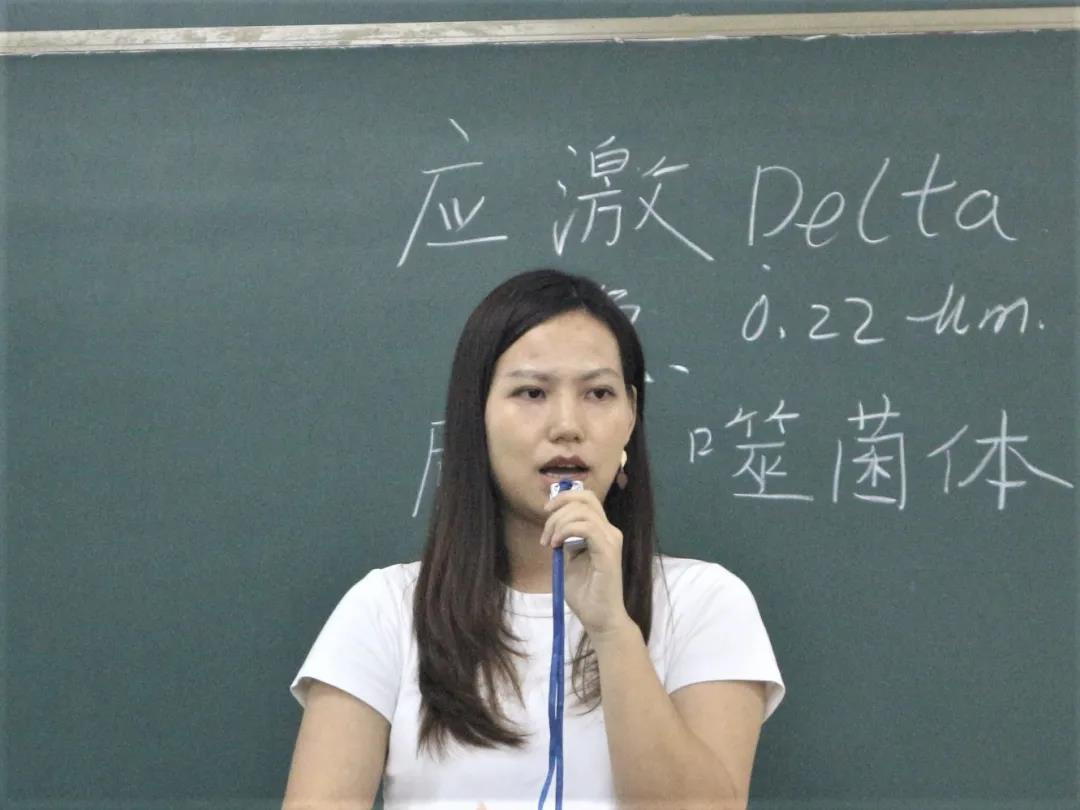 应激 Delta
0.22 μm.
噬菌体